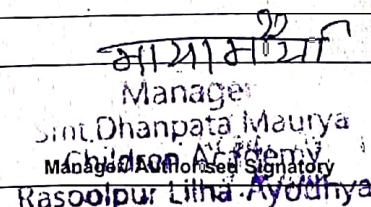 माया मौर्या
Manager
Smt. Dhanpata Maurya
Children Academy
Manager/Authorised Signatory
Rasoolpur Lilha Ayodhya